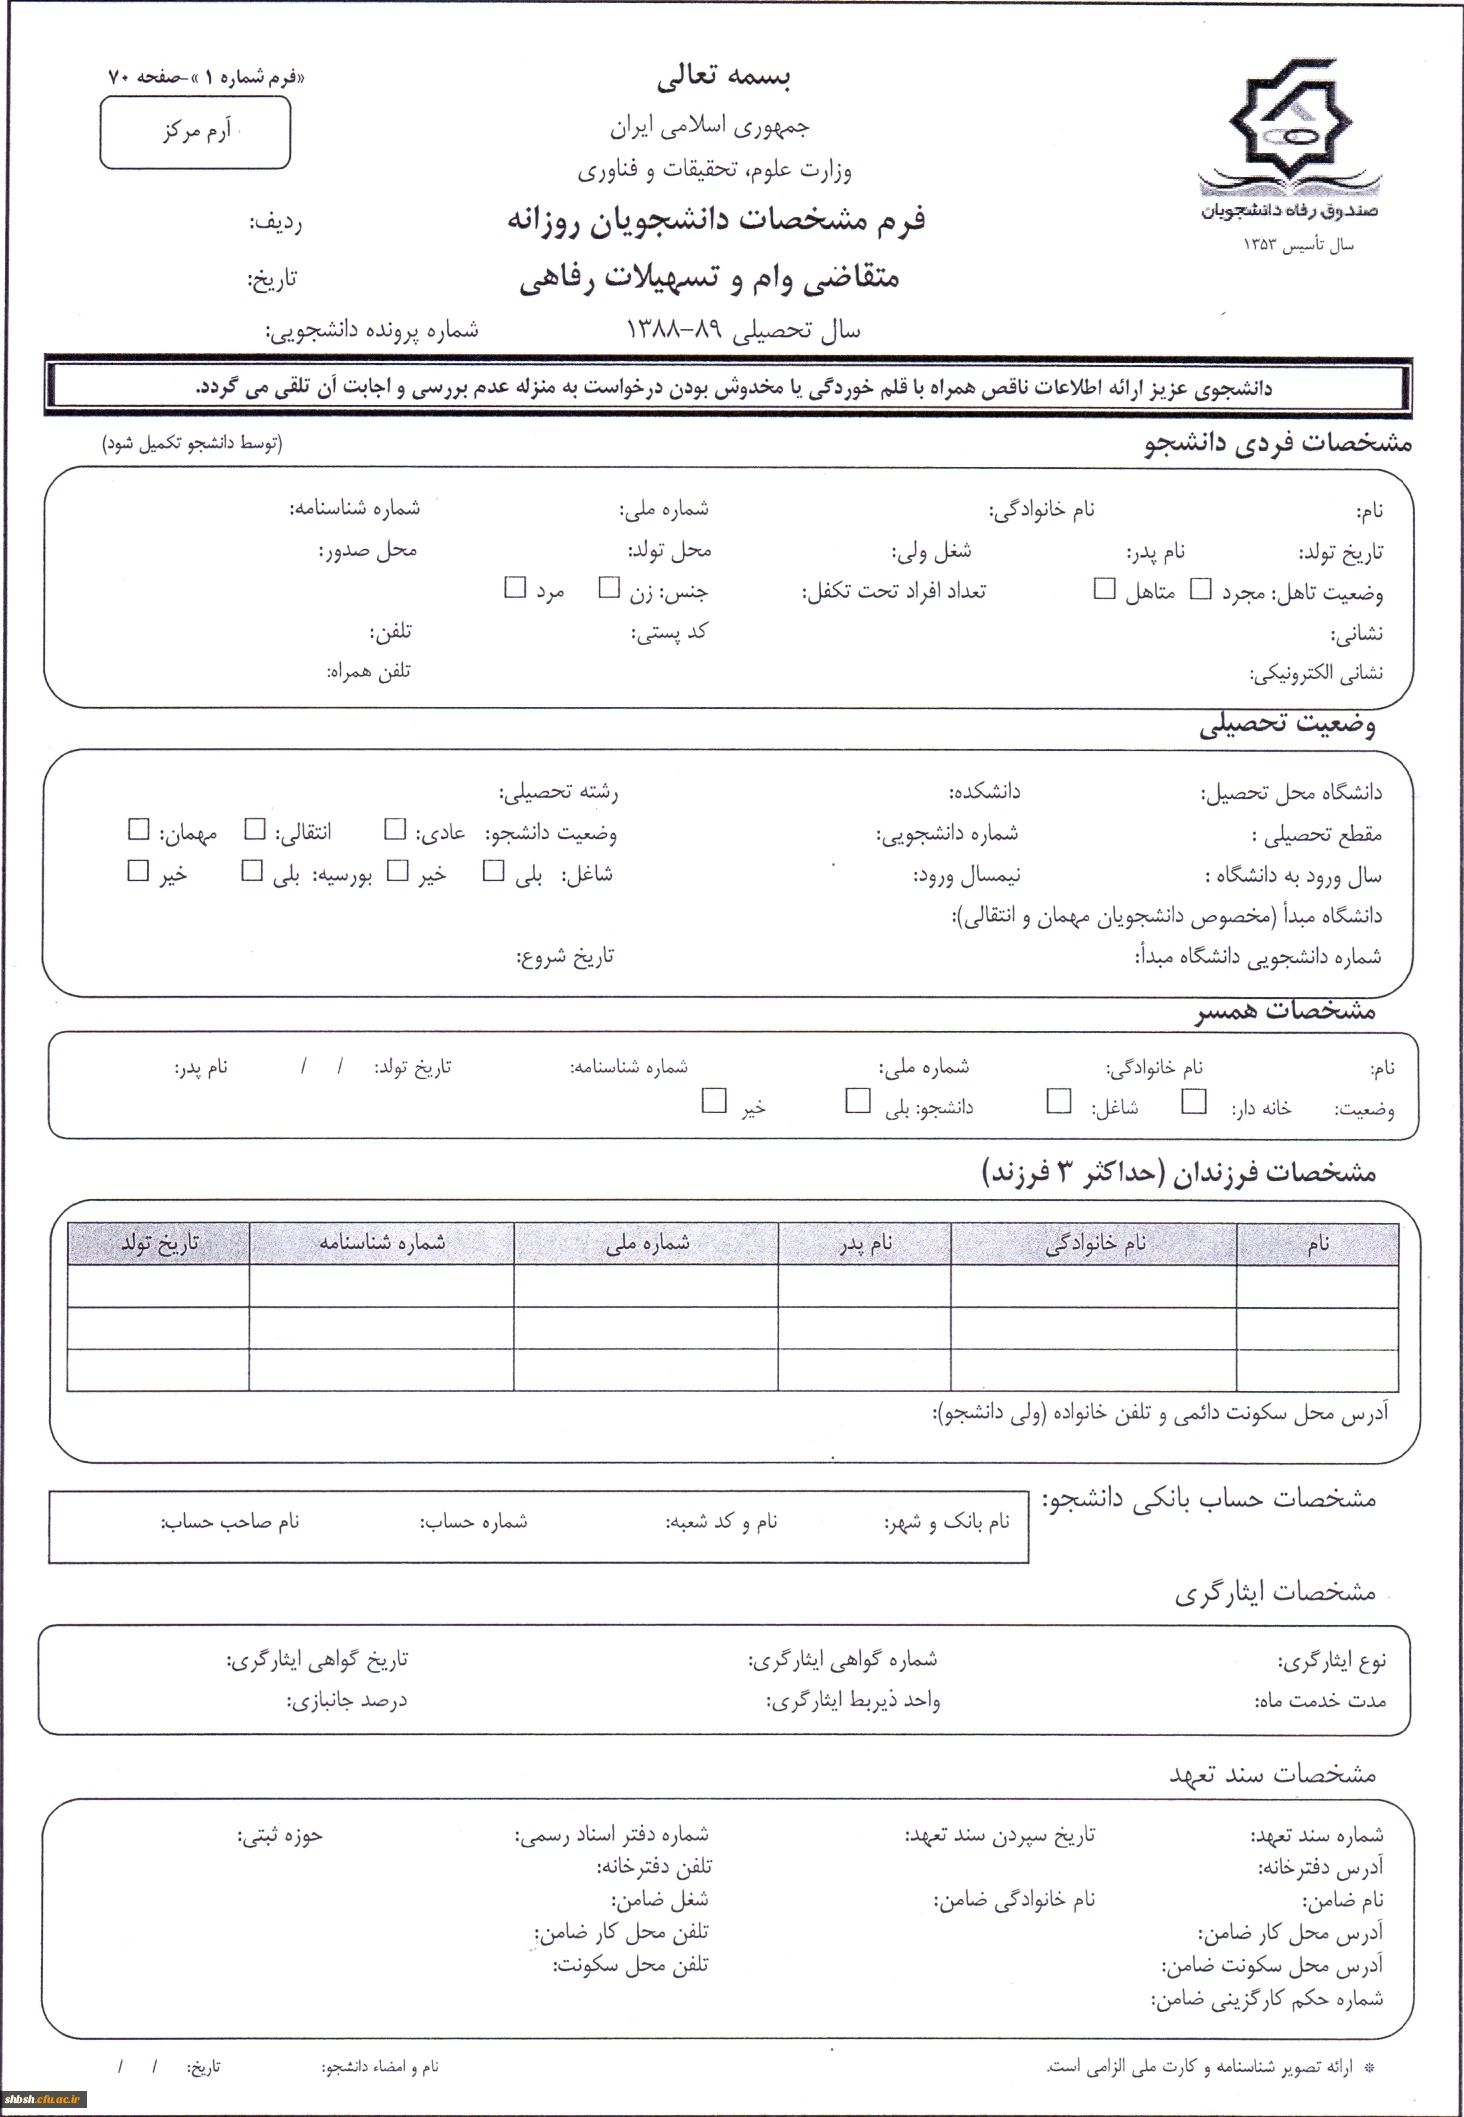 «فرم شماره ۱»-صفحه ۷۰
آرم مرکز
بسمه تعالی
جمهوری اسلامی ایران
وزارت علوم، تحقیقات و فناوری
فرم مشخصات دانشجویان روزانه
متقاضی وام و تسهیلات رفاهی
سال تحصیلی ۸۹-۱۳۸۸
صندوق رفاه دانشجویان
سال تأسیس ۱۳۵۳
ردیف:
تاریخ:
شماره پرونده دانشجویی:
دانشجوی عزیز ارائه اطلاعات ناقص همراه با قلم خوردگی یا مخدوش بودن درخواست به منزله عدم بررسی و اجابت آن تلقی می گردد.
مشخصات فردی دانشجو (توسط دانشجو تکمیل شود)
نام: نام خانوادگی: شماره ملی: شماره شناسنامه:
تاریخ تولد: نام پدر: شغل ولی: محل تولد: محل صدور:
وضعیت تاهل: مجرد □ متاهل □ تعداد افراد تحت تکفل: جنس: زن □ مرد □
نشانی: کد پستی: تلفن:
نشانی الکترونیکی: تلفن همراه:
وضعیت تحصیلی
دانشگاه محل تحصیل: دانشکده: رشته تحصیلی:
مقطع تحصیلی : شماره دانشجویی: وضعیت دانشجو: عادی: □ انتقالی: □ مهمان: □
سال ورود به دانشگاه : نیمسال ورود: شاغل: بلی □ خیر □ بورسیه: بلی □ خیر □
دانشگاه مبدأ (مخصوص دانشجویان مهمان و انتقالی):
شماره دانشجویی دانشگاه مبدأ: تاریخ شروع:
مشخصات همسر
نام: نام خانوادگی: شماره ملی: شماره شناسنامه: تاریخ تولد: / / نام پدر:
وضعیت: خانه دار: □ شاغل: □ دانشجو: بلی □ خیر □
مشخصات فرزندان (حداکثر ۳ فرزند)
نام نام خانوادگی نام پدر شماره ملی شماره شناسنامه تاریخ تولد
آدرس محل سکونت دائمی و تلفن خانواده (ولی دانشجو):
مشخصات حساب بانکی دانشجو:
نام بانک و شهر: نام و کد شعبه: شماره حساب: نام صاحب حساب:
مشخصات ایثارگری
نوع ایثارگری: شماره گواهی ایثارگری: تاریخ گواهی ایثارگری:
مدت خدمت ماه: واحد ذیربط ایثارگری: درصد جانبازی:
مشخصات سند تعهد
شماره سند تعهد: تاریخ سپردن سند تعهد: شماره دفتر اسناد رسمی: حوزه ثبتی:
آدرس دفترخانه: تلفن دفترخانه:
نام ضامن: نام خانوادگی ضامن: شغل ضامن:
آدرس محل کار ضامن: تلفن محل کار ضامن:
آدرس محل سکونت ضامن: تلفن محل سکونت:
شماره حکم کارگزینی ضامن:
* ارائه تصویر شناسنامه و کارت ملی الزامی است. نام و امضاء دانشجو: تاریخ: / /
shbsh.cfu.ac.ir